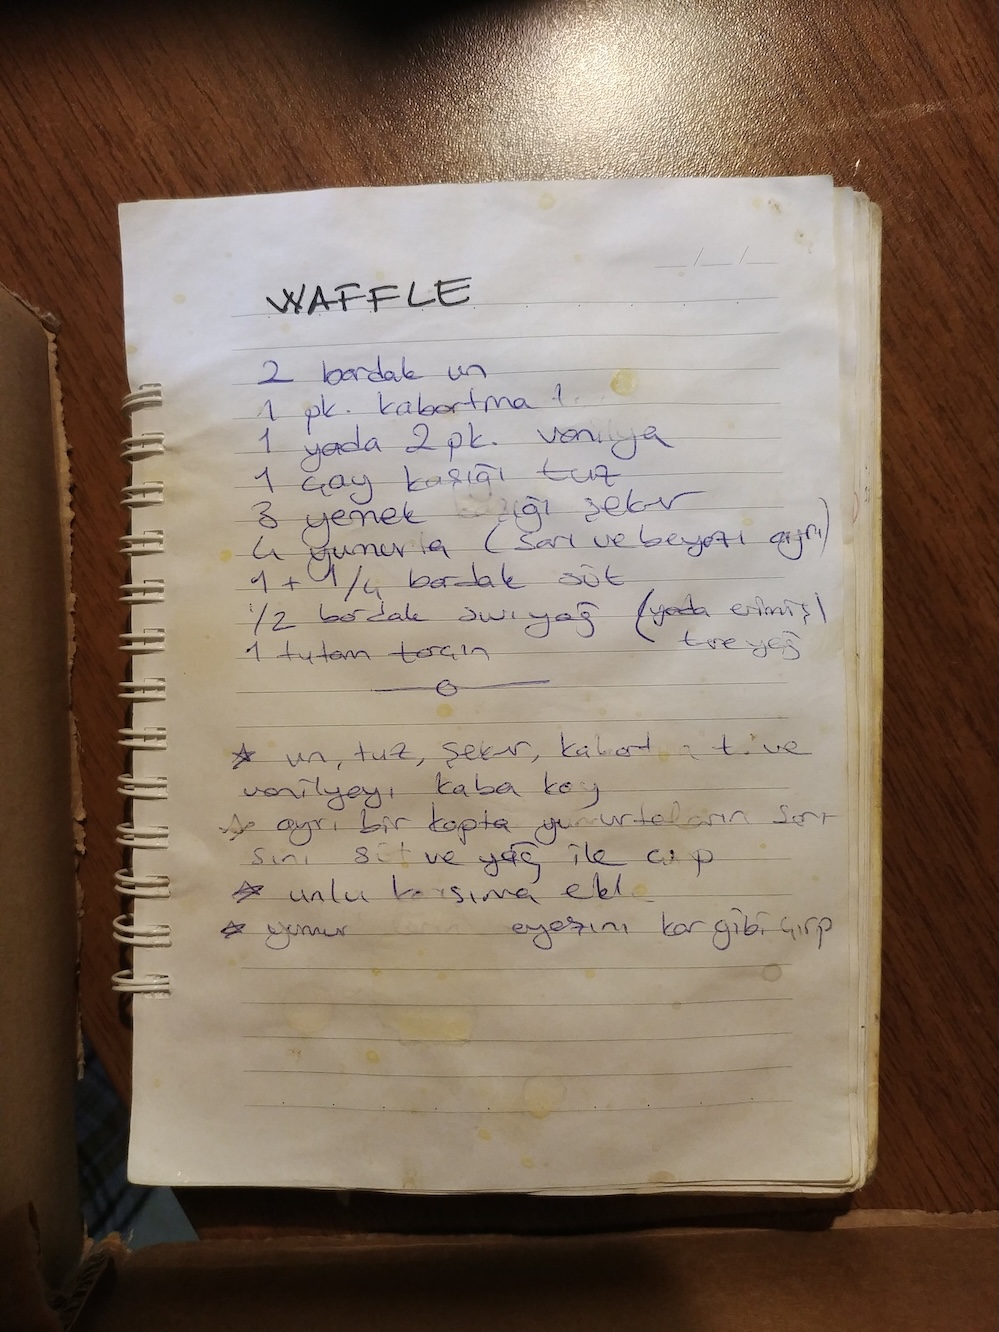 WAFFLE
2 bardak un
1 pk. kabartma t.
1 yada 2 pk. vanilya
1 çay kaşığı tuz
3 yemek şeker
4 yumurta (sarı ve beyazı ayrı)
1 + 1/4 bardak süt
1/2 bardak sıvıyağ (yada erimiş)
tereyağ
1 tutam tarçın
* un, tuz, şeker, t. ve
vanilyeyi kaba koy
* ayrı bir kapta yumurtaların sarı
sını süt ve yağ ile çırp
* unlu karışıma ekle
* kar gibi çırp